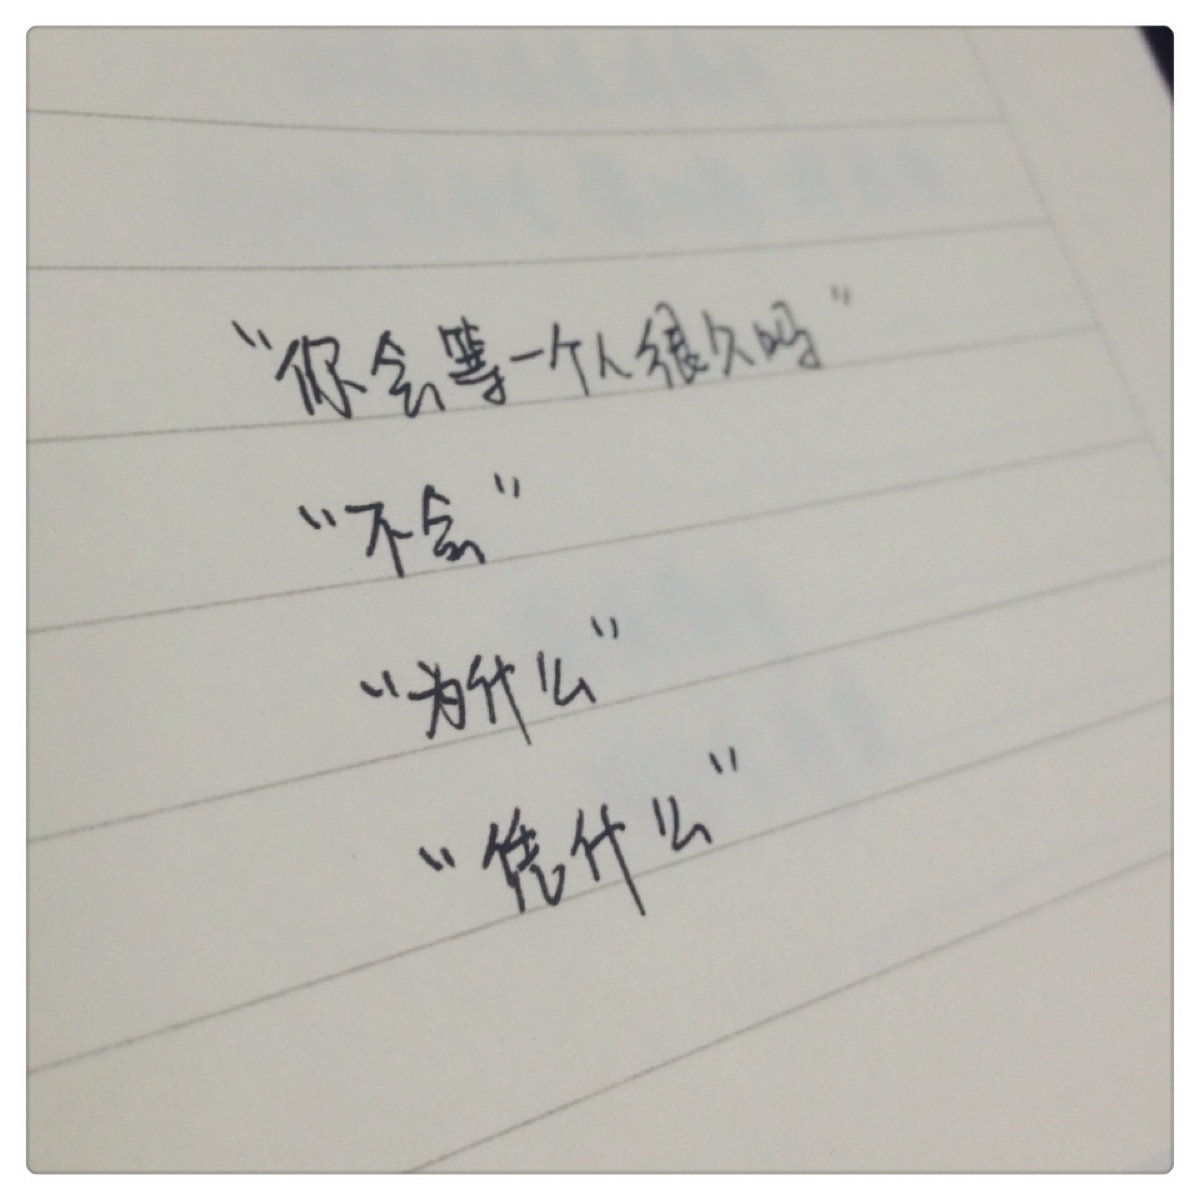 “你会等一个人很久吗”
“不会”
“为什么”
“凭什么”